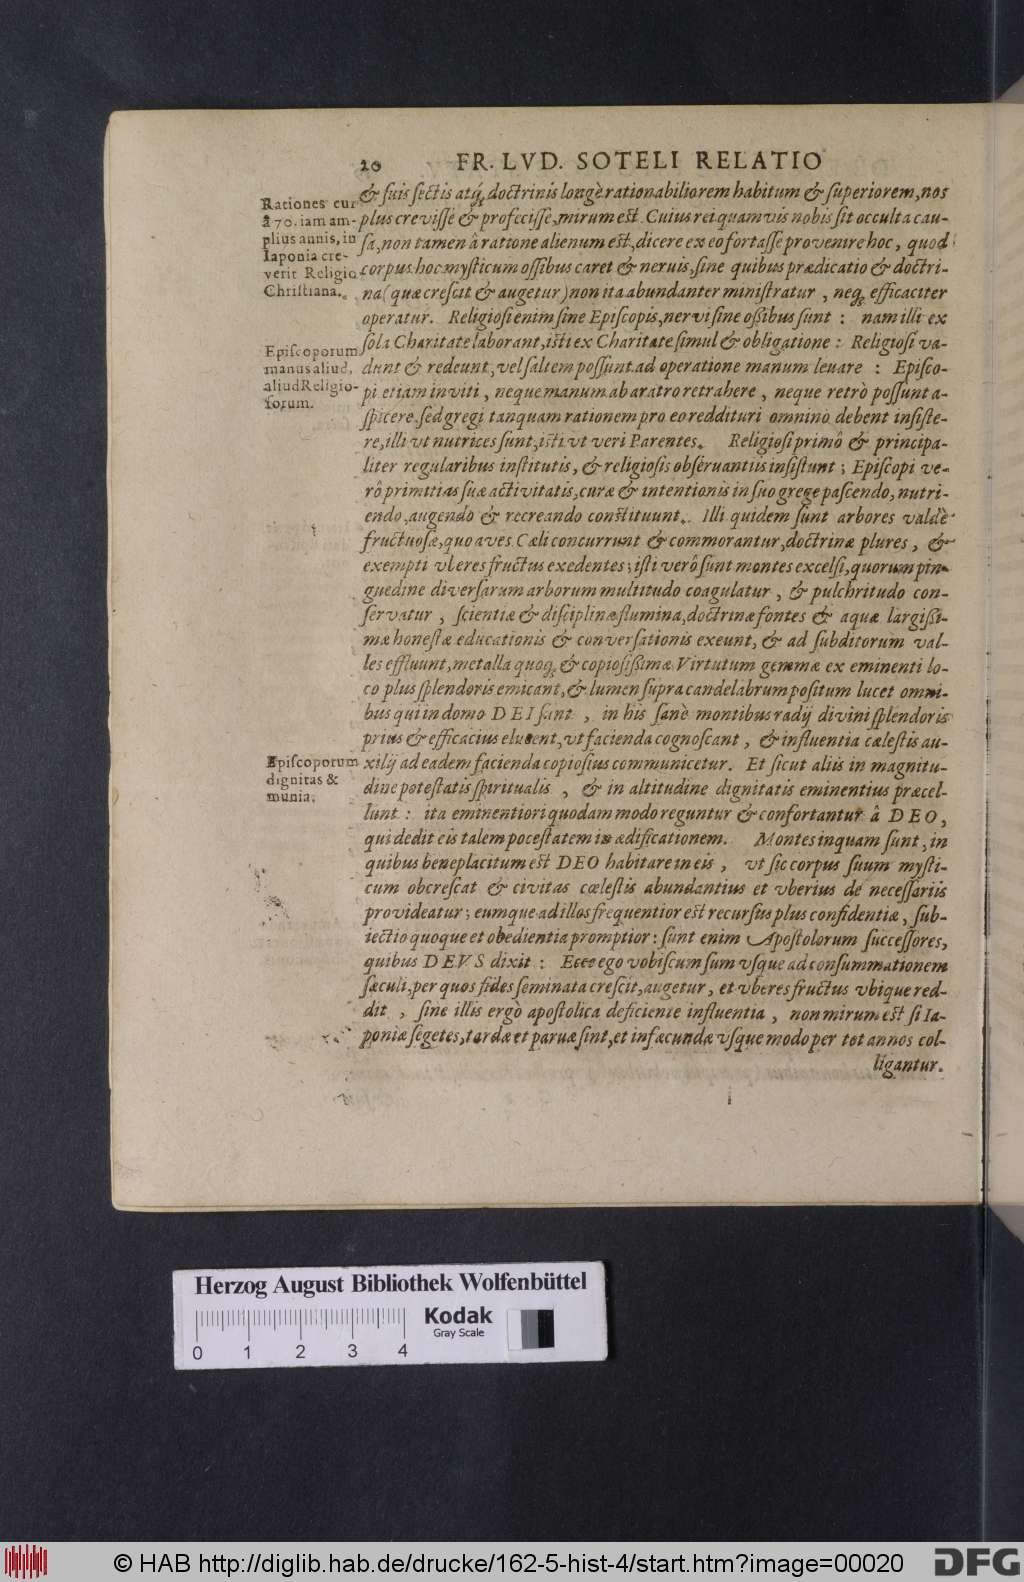 20 FR. LVD. SOTELI RELATIO
& suis sectis atq́; doctrinis longè rationabiliorem habitum & superiorem, nos
plus crevisse & profecisse, mirum est. Cuius rei quamvis nobis sit occulta cau-
sa, non tamen â ratione alienum est, dicere ex eo fortasse provenire hoc, quod
corpus hoc mysticum ossibus caret & neruis, sine quibus prædicatio & doctri-
na (quæ crescit & augetur) non ita abundanter ministratur, neq; efficaciter
operatur. Religiosi enim sine Episcopis, nervi sine ossibus sunt: nam illi ex
sola Charitate laborant, isti ex Charitate simul & obligatione: Religiosi va-
dunt & redeunt, vel saltem possunt ad operatione manum leuare: Episco-
pi etiam inviti, neque manum ab aratro retrahere, neque retrò possunt a-
spicere, sed gregi tanquam rationem pro eo reddituri omnino debent insiste-
re, illi vt nutrices sunt, isti vt veri Parentes. Religiosi primô & principa-
liter regularibus institutis, & religiosis observantiis insistunt; Episcopi ve-
rô primitias suæ activitatis, curæ & intentionis in suo grege pascendo, nutri-
endo, augendo & recreando constituunt. Illi quidem sunt arbores valdè
fructuosæ, quo aves Cæli concurrunt & commorantur, doctrinæ plures, &
exempti vberes fructus exedentes; isti verô sunt montes excelsi, quorum pin-
guedine diversarum arborum multitudo coagulatur, & pulchritudo con-
servatur, scientiæ & disciplinæ flumina, doctrinæ fontes & aquæ largissi-
mæ honestæ educationis & conversationis exeunt, & ad subditorum val-
les effluunt, metalla quoq; & copiosissimæ Virtutum gemmæ ex eminenti lo-
co plus splendoris emicant, & lumen supra candelabrum positum lucet omni-
bus qui in domo DEI sunt, in his sanè montibus radij divini splendoris
prius & efficacius elucent, vt facienda cognoscant, & influentia cælestis au-
xilij ad eadem facienda copiosius communicetur. Et sicut aliis in magnitu-
dine potestatis spiritualis, & in altitudine dignitatis eminentius præcel-
lunt: ita eminentiori quodammodo reguntur & confortantur â DEO,
qui dedit eis talem pocestatem in ædificationem. Montes inquam sunt, in
quibus beneplacitum est DEO habitare in eis, vt sic corpus suum mysti-
cum obcrescat & civitas cœlestis abundantius et vberius de necessariis
provideatur; eumque ad illos frequentior est recursus plus confidentiæ, sub-
iectio quoque et obedientia promptior: sunt enim Apostolorum successores,
quibus DEVS dixit: Ecce ego vobiscum sum vsque ad consummationem
sæculi, per quos fides seminata crescit, augetur, et vberes fructus vbique red-
dit, sine illis ergò apostolica deficiente influentia, non mirum est si Ia-
poniæ segetes, tardæ et paruæ sint, et infæcundæ vsque modo per tot annos col-
ligantur.
Rationes cur
â 70. iam am-
plius annis, in
Iaponia cre-
verit Religio
Christiana.
Episcoporum
manus aliud,
aliud Religio-
sorum.
Episcoporum
dignitas &
munia.
Herzog August Bibliothek Wolfenbüttel
Kodak
Gray Scale
0 1 2 3 4
© HAB http://diglib.hab.de/drucke/162-5-hist-4/start.htm?image=00020
DFG